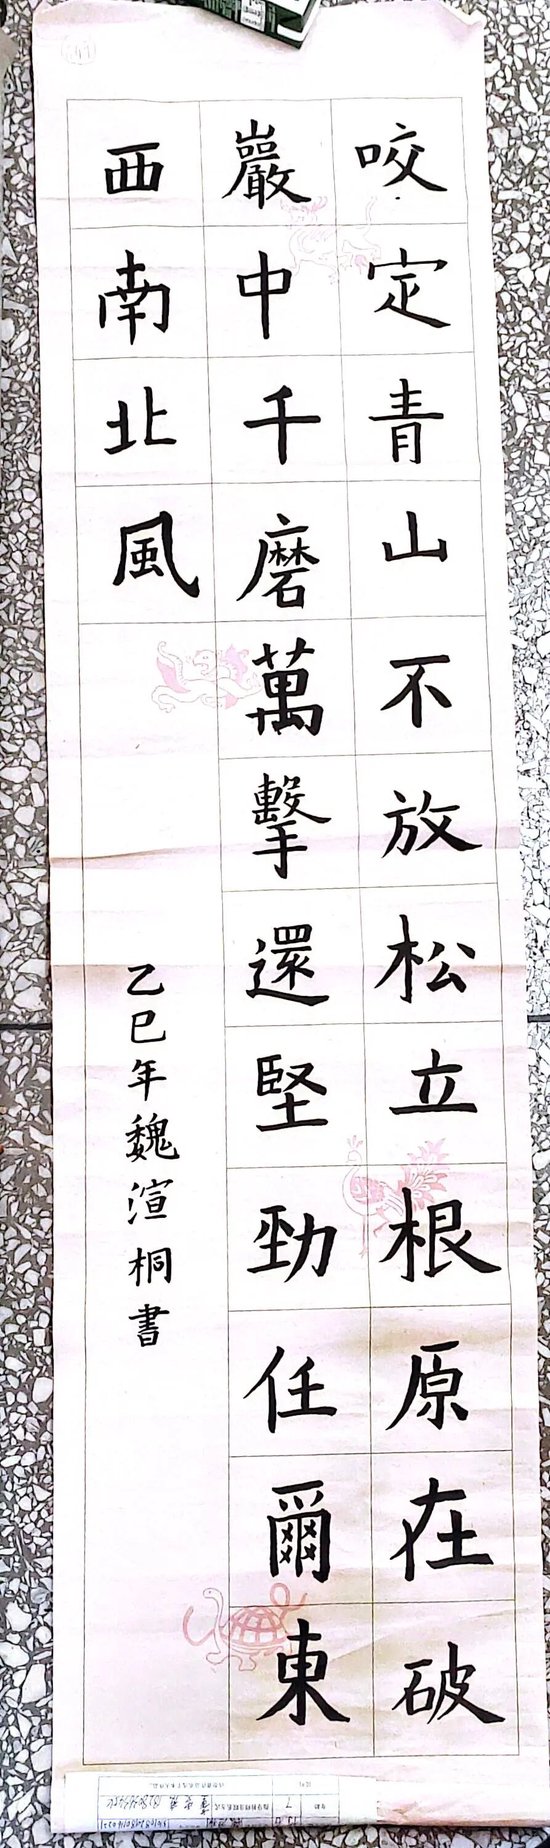 咬定青山不放松立根原在破
巖中千磨萬擊還堅勁任爾東
西南北風
乙巳年魏渲桐書